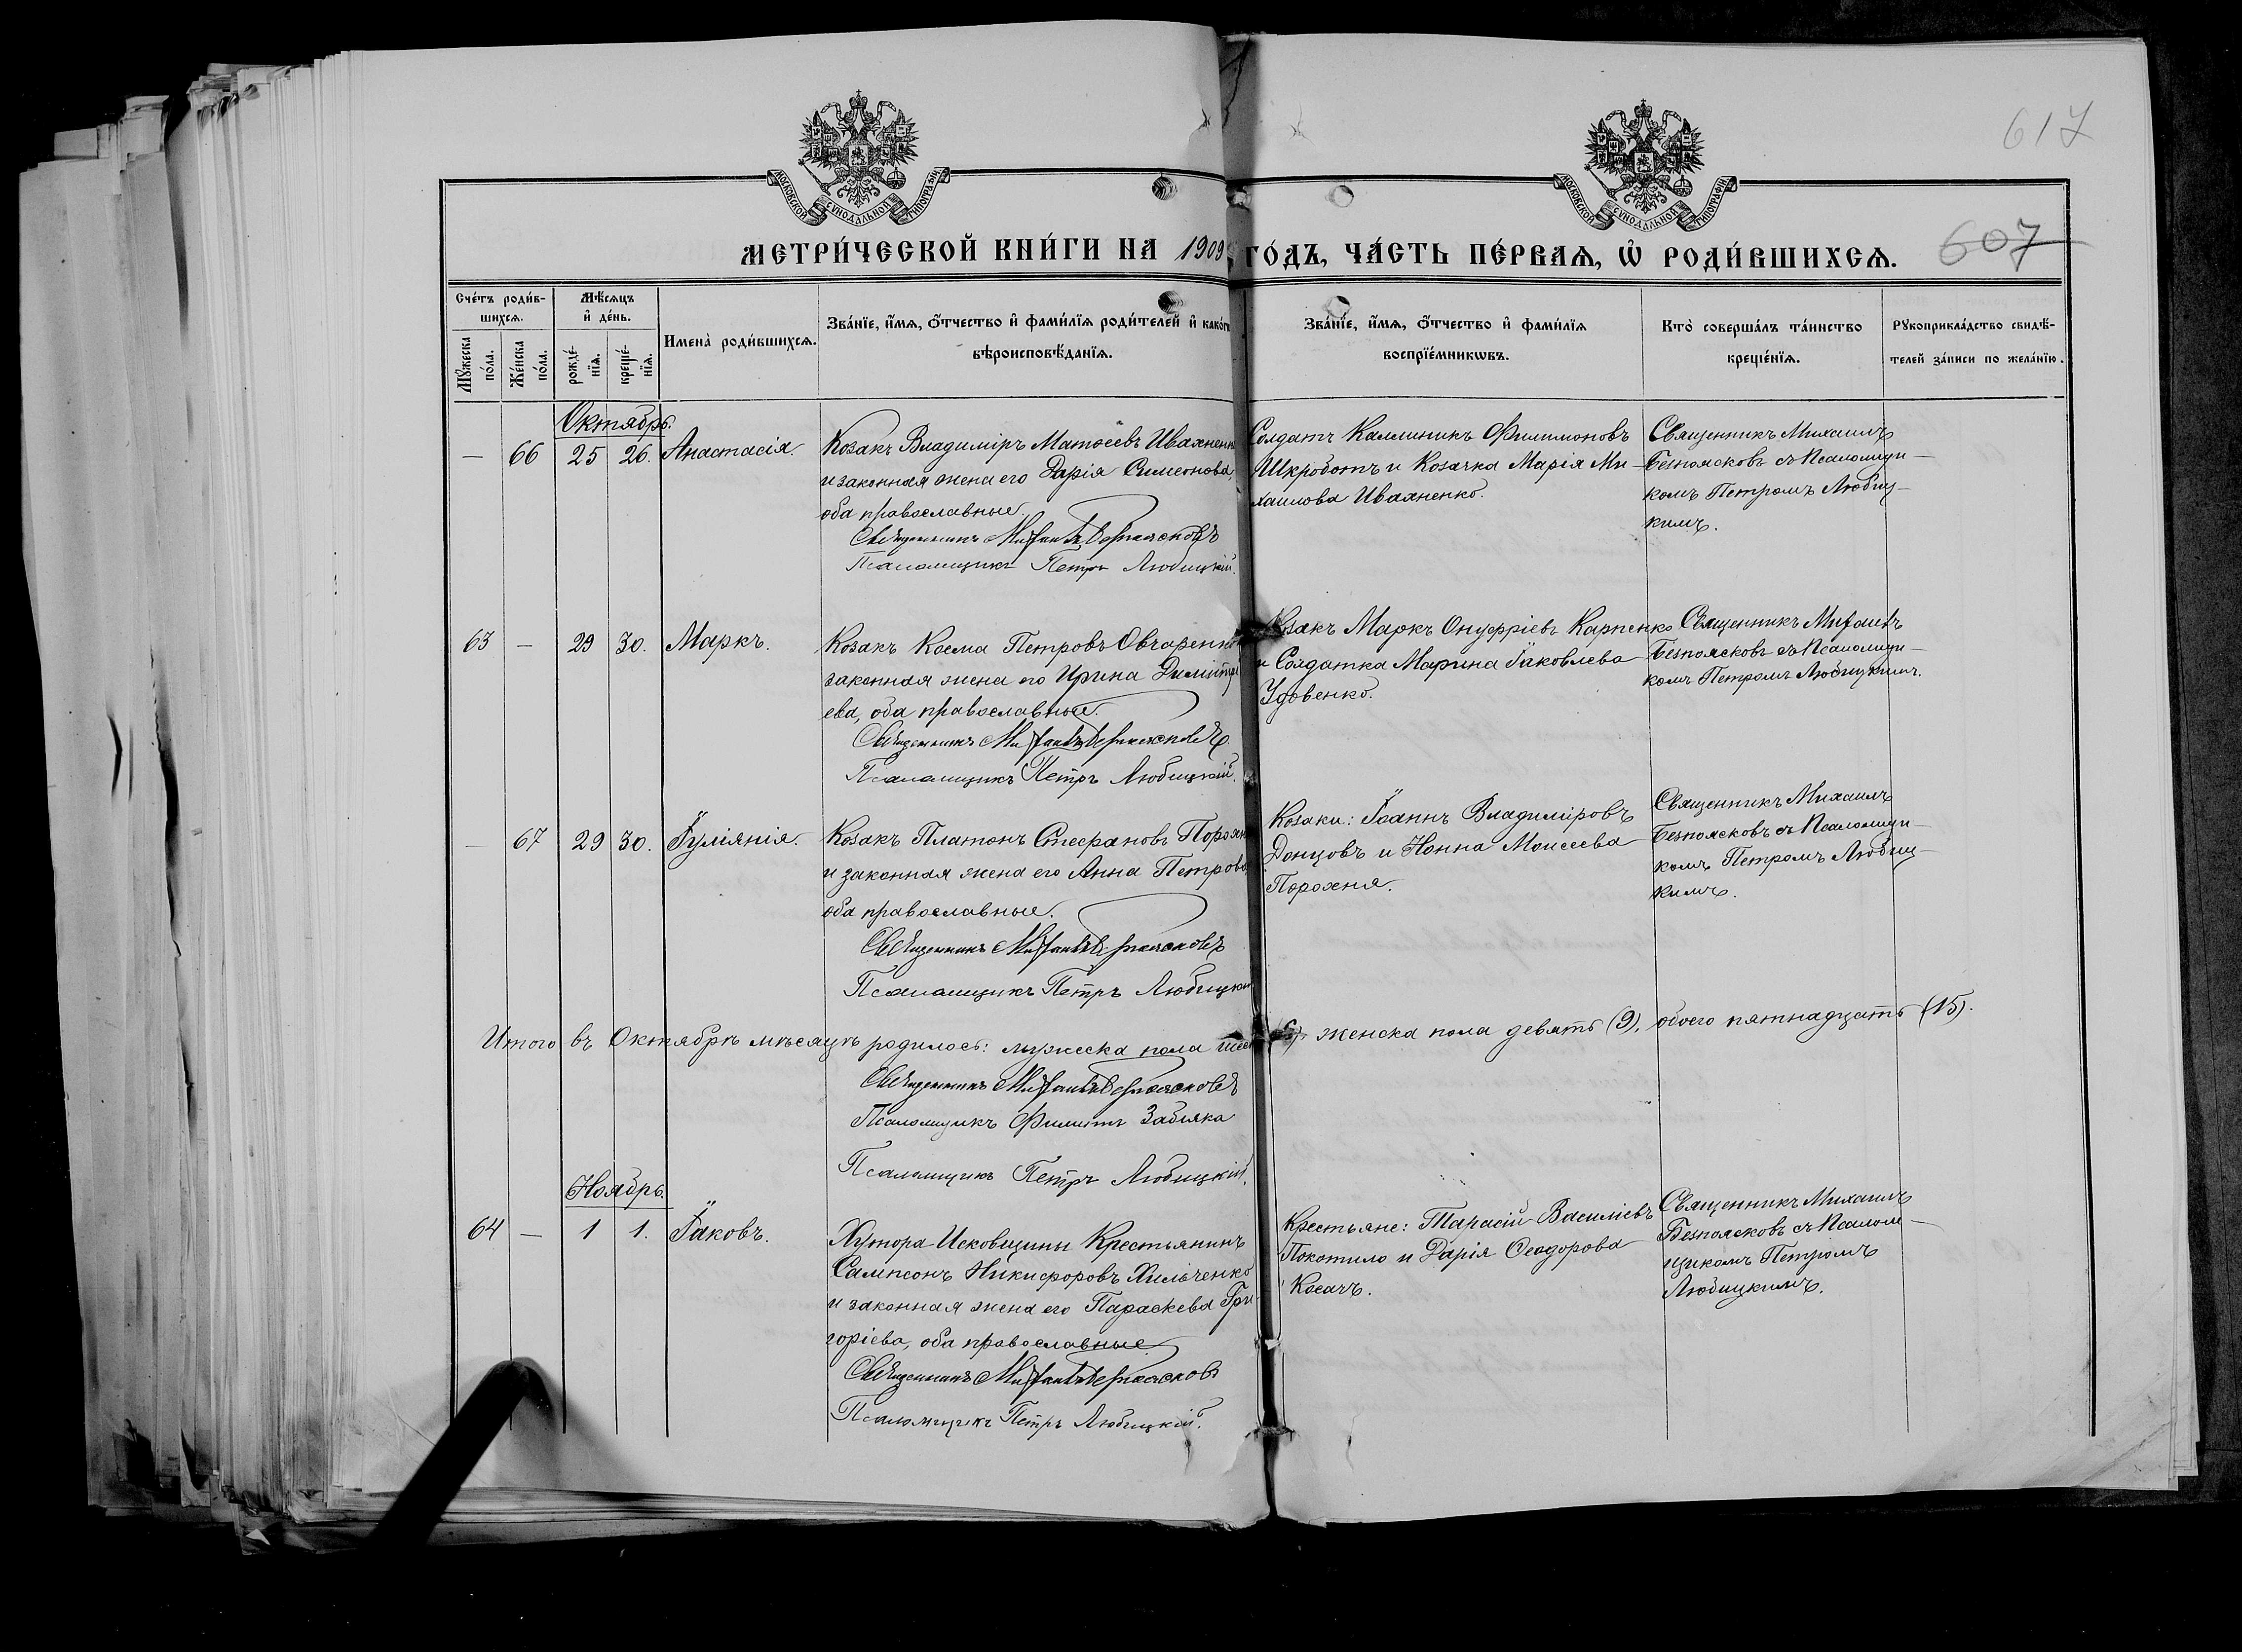 617
МОСКОВСКОЙ СУНОДАЛЬНОЙ ТИПОГРАФІИ
МОСКОВСКОЙ СУНОДАЛЬНОЙ ТИПОГРАФІИ
МЕТРИ́ЧЕСКОЙ КНИ́ГИ НА 1909 ГО́ДЪ, ЧА́СТЬ ПЕ́РВАѦ, Ѡ҆ РОДИ́ВШИХСѦ.
607
Сче́тъ роди́в-
шихсѧ.
Мѣ́сѧцъ
и҆ де́нь.
Мꙋ́жеска
по́ла.
Же́нска
по́ла.
рожде́-
нїѧ.
креще́-
нїѧ.
Имена̀ роди́вшихсѧ.
Зва́нїе, и҆́мѧ, ѻ҆́тчество и҆ фами́лїѧ роди́телей и҆ како́гѡ
вѣроисповѣ́данїѧ.
Зва́нїе, и҆́мѧ, ѻ҆́тчество и҆ фами́лїѧ
воспрїе́мникѡвъ.
Кто̀ соверша́лъ та́инство
креще́нїѧ.
Рꙋкоприкла́дство свидѣ́-
телей за́писи по жела́нїю.
Октябрь.
— 66 25 26. Анастасія.
Козакъ Владиміръ Матѳеевъ Ивахненко
и законная жена его Дарія Симеонова,
оба православные.
Священникъ Михаилъ Безпоясковъ
Псаломщикъ Петръ Любицкій.
Солдатъ Каллиникъ Филимоновъ
Шкроботъ и Козачка Марія Ми-
хаилова Ивахненко.
Священникъ Михаилъ
Безпоясковъ съ Псаломщи-
комъ Петромъ Любиц-
кимъ.
63 — 29 30. Маркъ.
Козакъ Косма Петровъ Овчаренко
законная жена его Ирина Димитрі
ева, оба православные.
Священникъ Михаилъ Безпоясковъ
Псаломщикъ Петръ Любицкій.
Козакъ Маркъ Онуфріевъ Карпенко
и Солдатка Марина Іаковлева
Удовенко.
Священникъ Михаилъ
Безпоясковъ съ Псаломщи-
комъ Петромъ Любицкимъ.
— 67 29 30. Іуліянія.
Козакъ Платонъ Стефановъ Порохн
и законная жена его Анна Петрова,
оба православные.
Священникъ Михаилъ Безпоясковъ
Псаломщикъ Петръ Любицкій
Козаки: Іоаннъ Владиміровъ
Донцовъ и Нонна Моисеева
Порохня.
Священникъ Михаилъ
Безпоясковъ съ Псаломщи-
комъ Петромъ Любиц-
кимъ.
Итого въ Октябрѣ мѣсяцѣ родилось: мужеска пола шесть (6), женска пола девять (9), обоего пятнадцать (15).
Священникъ Михаилъ Безпоясковъ
Псаломщикъ Филиппъ Забіяка
Псаломщикъ Петръ Любицкій.
Ноябрь.
64 — 1 1. Іаковъ.
Хутора Исковщины Крестьянинъ
Сампсонъ Никифоровъ Хильченко
и законная жена его Параскева Гри
горіева, оба православные
Священникъ Михаилъ Безпоясковъ
Псаломщикъ Петръ Любицкій.
Крестьяне: Тарасій Василіевъ
Покотило и Дарія Ѳеодорова
Косачъ.
Священникъ Михаилъ
Безпоясковъ съ Псалом-
щикомъ Петромъ
Любицкимъ.